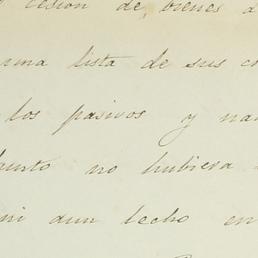 cesion de bienes d
una lista de sus co
los pasivos y na
no hubiera
ni aun lecho en